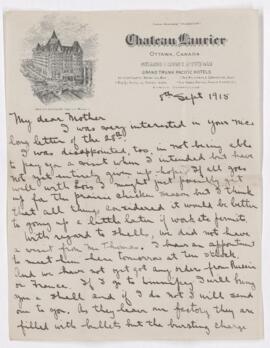 Chateau Laurier
Ottawa, Canada
GRAND TRUNK PACIFIC HOTELS
8th Sept 1915
My dear Mother
I was very interested in your nice
long letter of the
I was disappointed, too, in not being able
to pay you a visit when I intended but have
not yet entirely given up hope. If all goes
well with
for the prairie chicken season but I think
that all things considered it would be better
to going up a little later if work permits.
With regard to shells, we did not have
a visit from Mr Thomas. I have an appointment
to meet him here tomorrow at
And we have not got any orders from Russia
or France. If I go to Winnipeg I will bring
you a shell and if I do not I will send
one to you. As they leave our factory they are
filled with bullets but the bursting charge